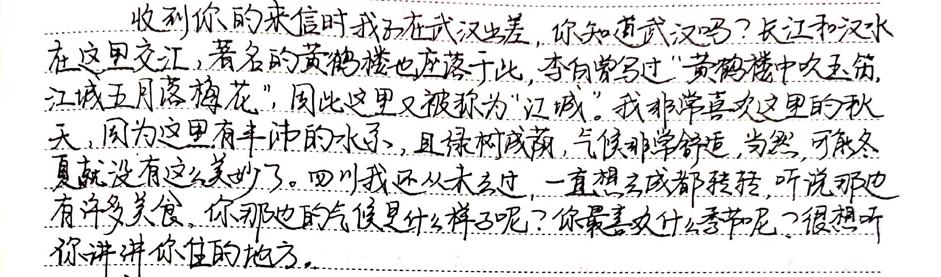 收到你的来信时我正在武汉出差，你知道武汉吗？长江和汉水
在这里交汇，著名的黄鹤楼也座落于此，李白曾写过“黄鹤楼中吹玉笛，
江城五月落梅花”，因此这里又被称为“江城”。我非常喜欢这里的秋
天，因为这里有丰沛的水系，且绿树成荫，气候非常舒适，当然，可能冬
夏就没有这么美妙了。四川我还从未去过，一直想去成都转转，听说那边
有许多美食，你那边的气候是什么样子呢？你最喜欢什么季节呢？很想听
你讲讲你住的地方。